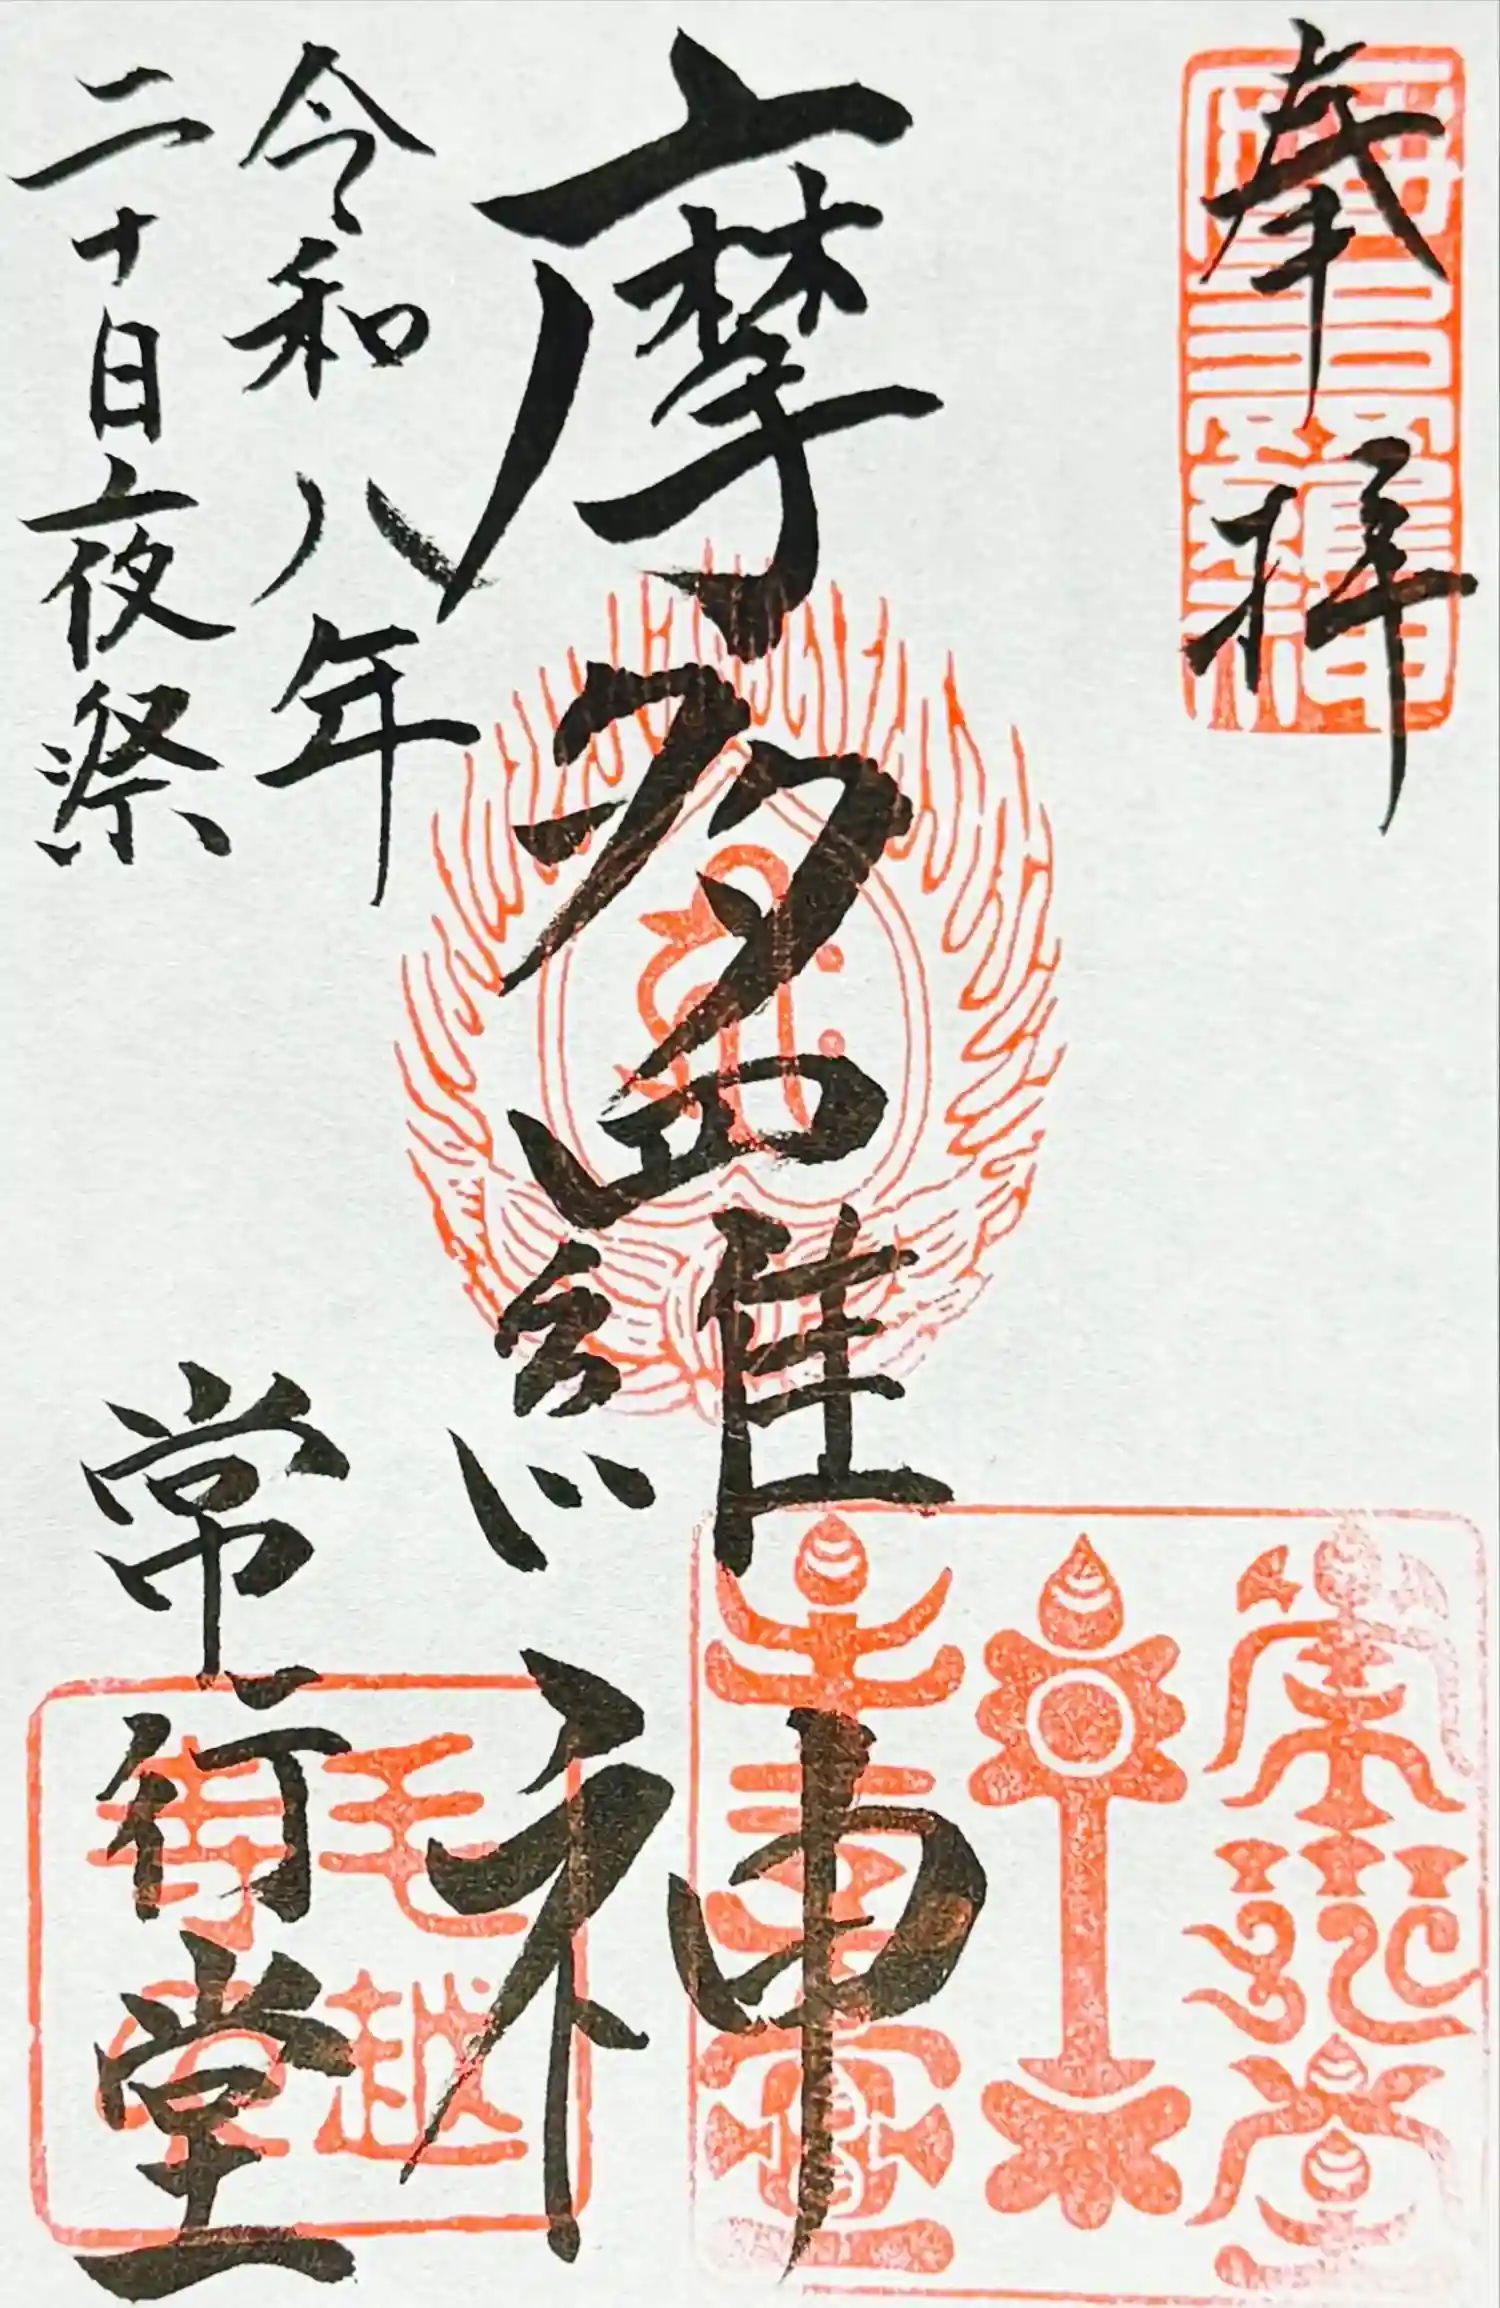 奉拝
摩多羅神
令和八年
二十日夜祭
常行堂
毛越
寺印